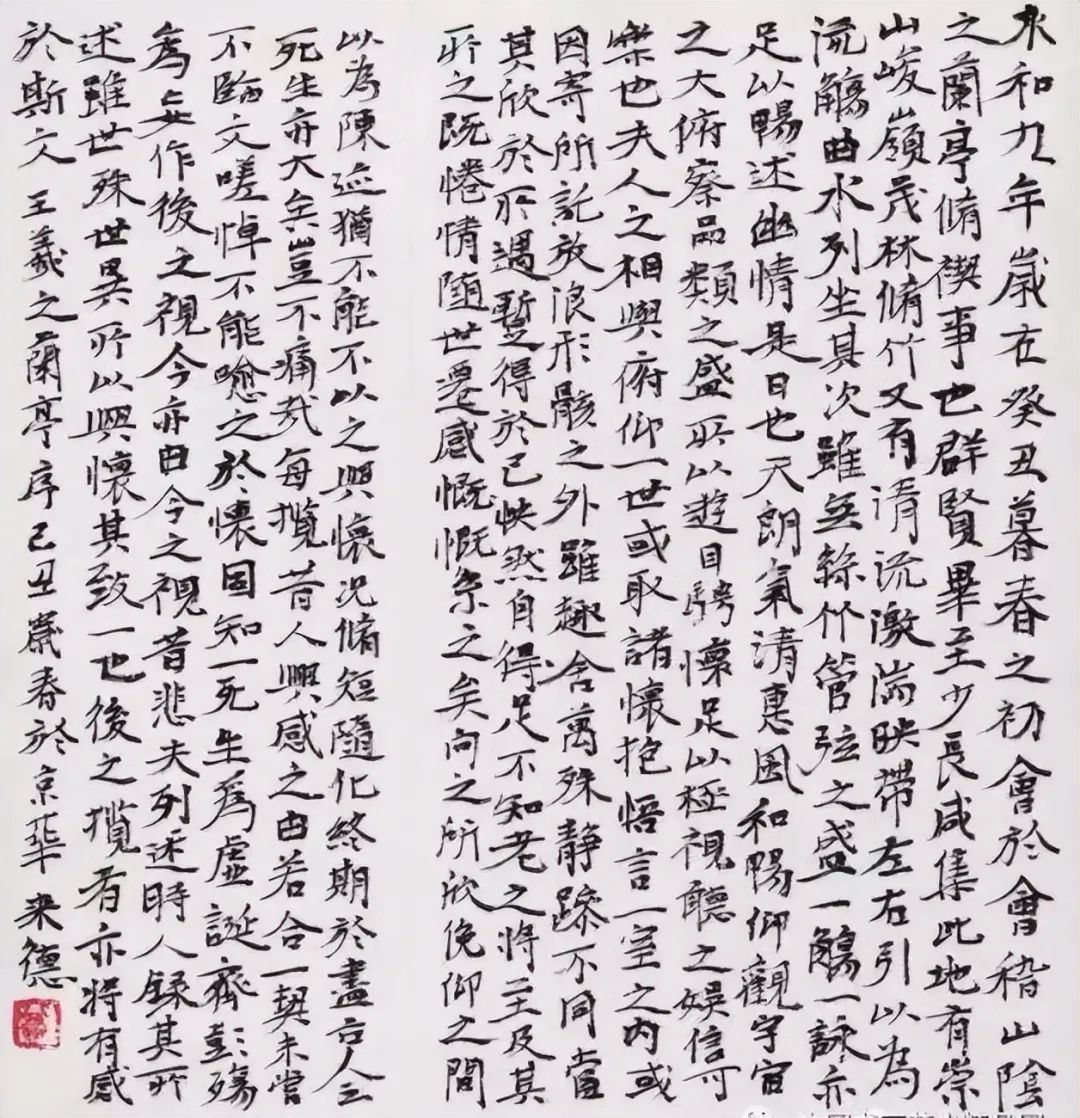 永和九年歲在癸丑暮春之初會於會稽山陰
之蘭亭脩禊事也群賢畢至少長咸集此地有崇
山峻嶺茂林脩竹又有清流激湍映帶左右引以為
流觴曲水列坐其次雖無絲竹管弦之盛一觴一詠亦
足以暢述幽情是日也天朗氣清惠風和暢仰觀宇宙
之大俯察品類之盛所以遊目騁懷足以極視聽之娛信可
樂也夫人之相與俯仰一世或取諸懷抱悟言一室之內或
因寄所託放浪形骸之外雖趣舍萬殊静躁不同當
其欣於所遇暫得於己怏然自得足不知老之將至及其
所之既惓情隨世遷感慨慨係之矣向之所欣俛仰之間
以為陳迹猶不能不以之興懷况脩短隨化終期於盡古人云
死生亦大矣豈不痛哉每攬昔人興感之由若合一契未嘗
不臨文嗟悼不能喻之於懷固知一死生爲虛誕齊彭殤
為妄作後之視今亦由今之視昔悲夫列述時人録其所
述雖世殊世異所以興懷其致一也後之攬者亦將有感
於斯文 王羲之蘭亭序己丑歲春於京華 来德